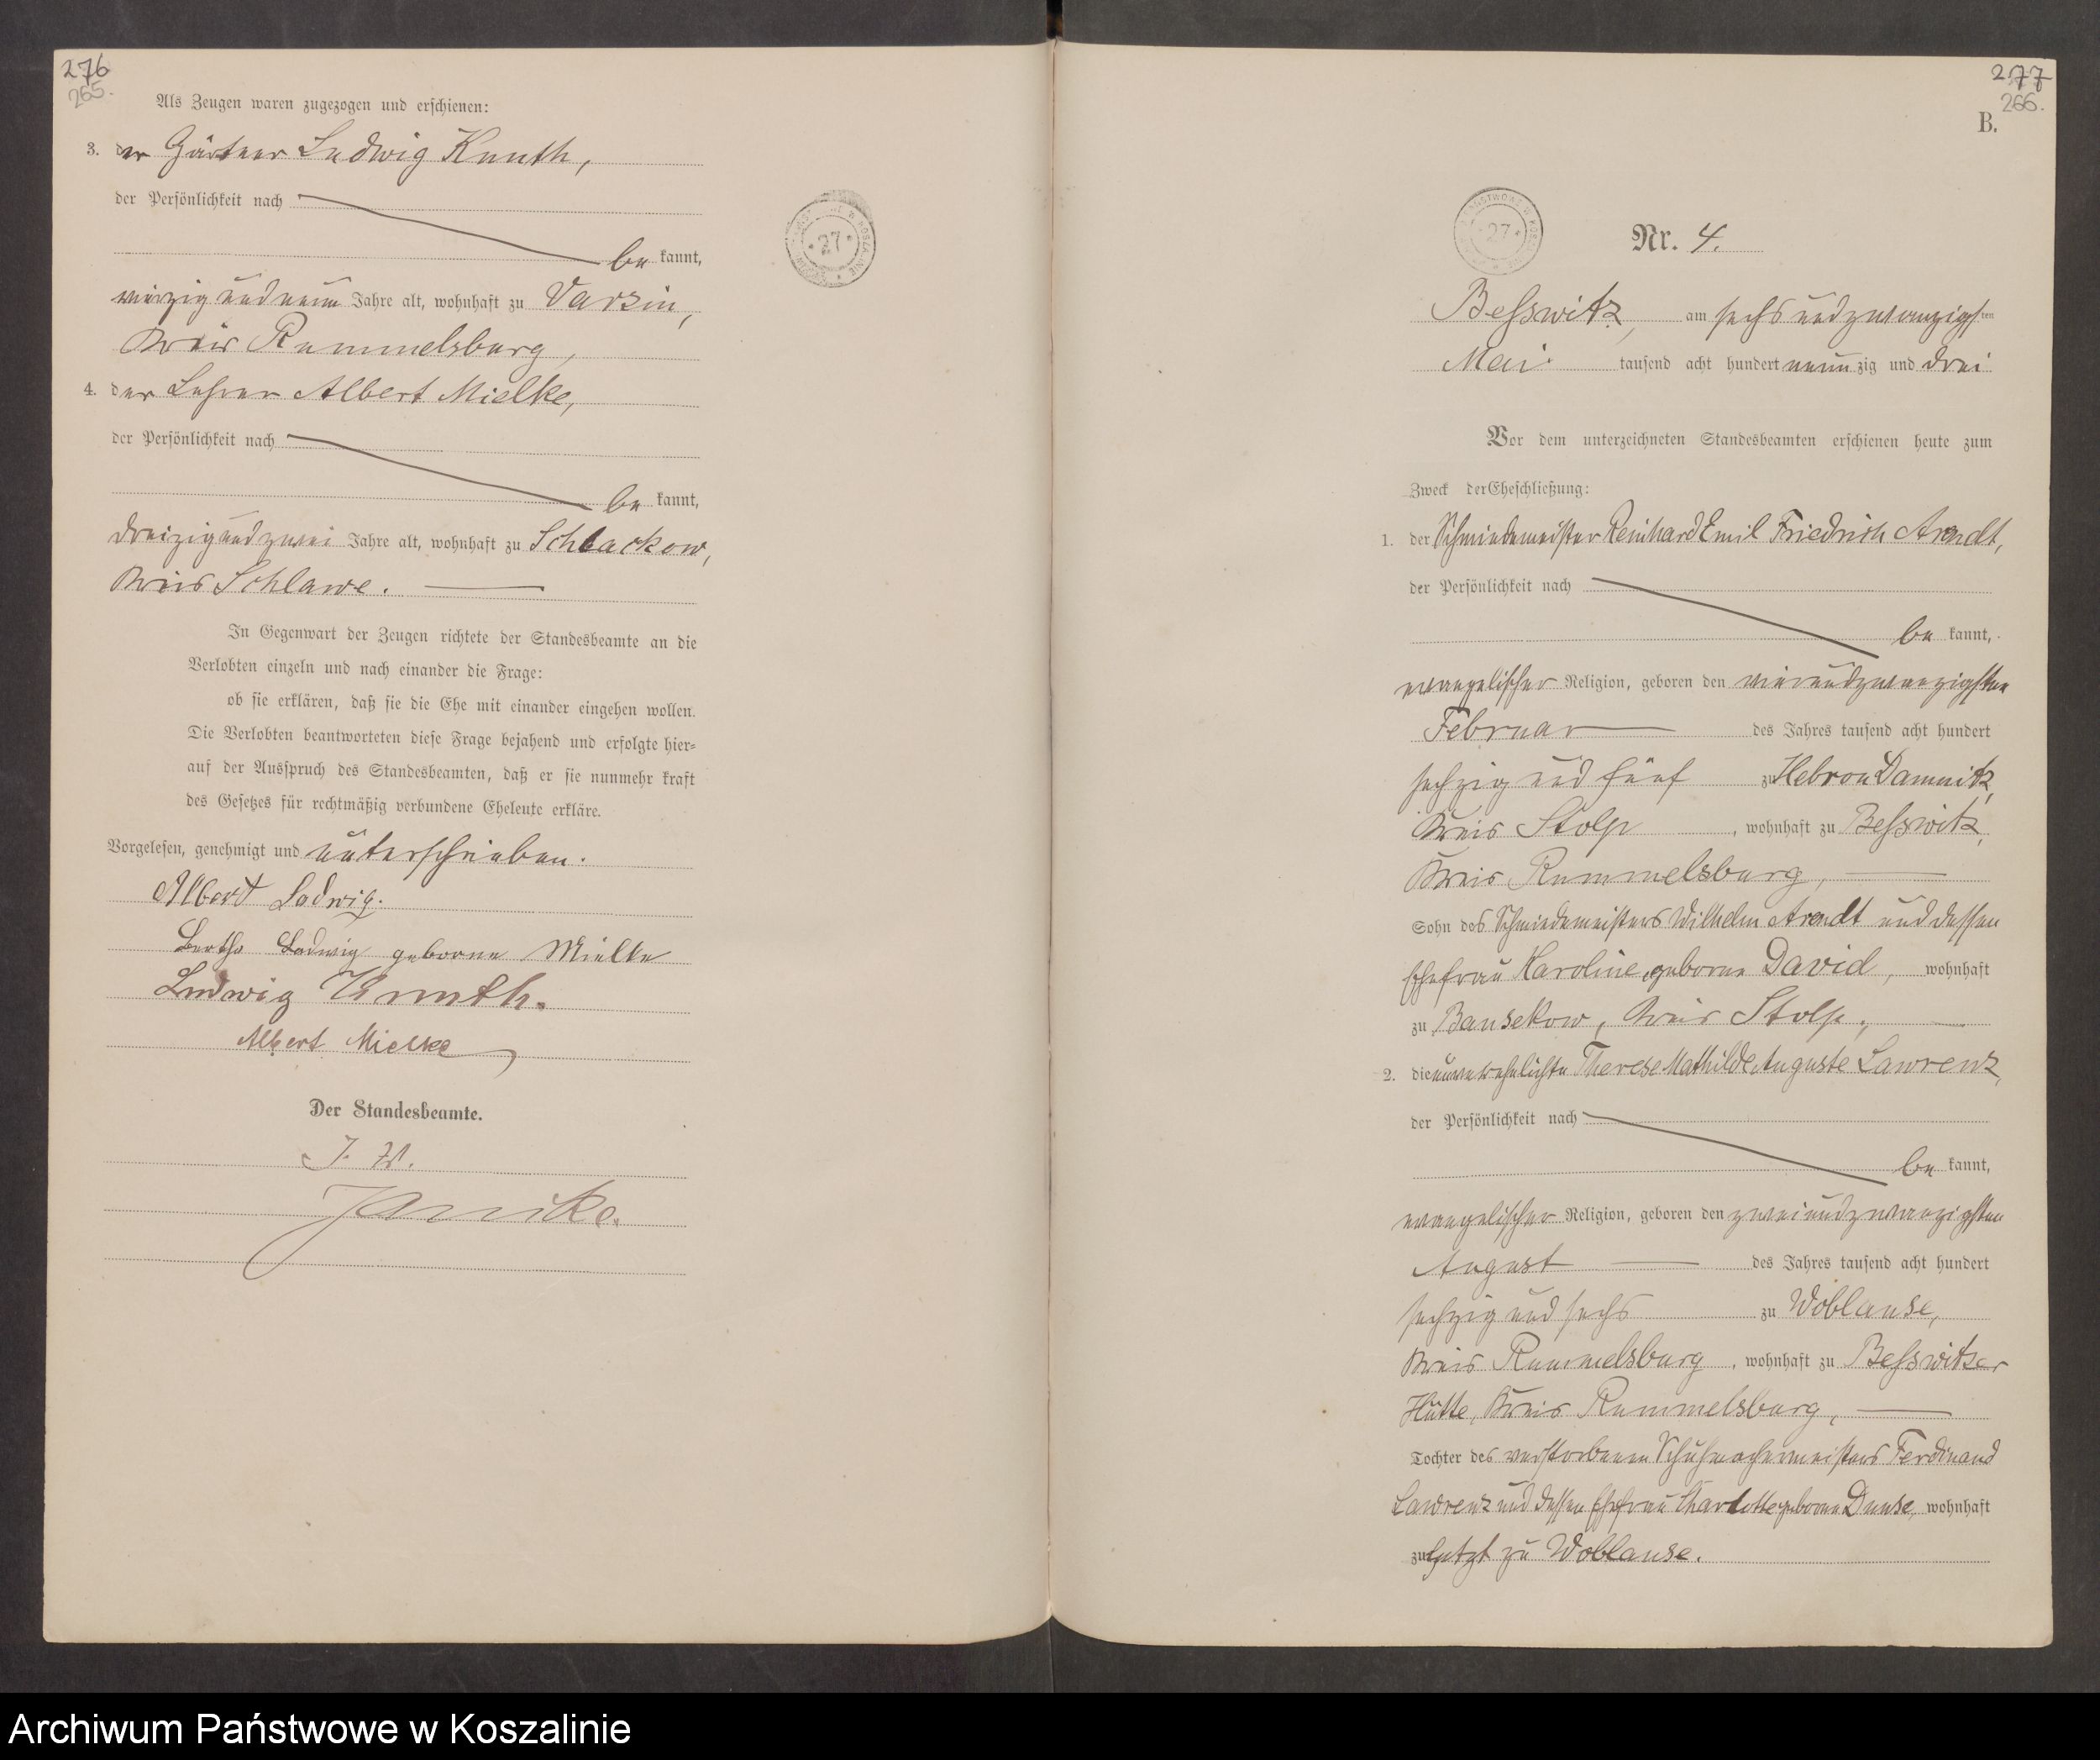 276
265.
Als Zeugen waren zugezogen und erschienen:
3. der Gärtner Ludwig Knuth,
der Persönlichkeit nach
be kannt,
vierzig und neun Jahre alt, wohnhaft zu Varzin,
Kreis Rummelsburg,
4. der Lehrer Albert Mielke,
der Persönlichkeit nach
be kannt,
dreizig und zwei Jahre alt, wohnhaft zu Schlackow,
Kreis Schlawe.
In Gegenwart der Zeugen richtete der Standesbeamte an die
Verlobten einzeln und nach einander die Frage:
ob sie erklären, daß sie die Ehe mit einander eingehen wollen.
Die Verlobten beantworteten diese Frage bejahend und erfolgte hier=
auf der Ausspruch des Standesbeamten, daß er sie nunmehr kraft
des Gesetzes für rechtmäßig verbundene Eheleute erkläre.
Vorgelesen, genehmigt und unterschrieben.
Albert Ladwig.
Bertha Ladwig geborne Mielke
Ludwig Knuth.
Albert Mielke
Der Standesbeamte.
J. V.
Janike.
27
277
266.
B.
27
Nr. 4.
Besswitz, am sechs und zwanzigsten
Mai tausend acht hundert neunzig und drei
Vor dem unterzeichneten Standesbeamten erschienen heute zum
Zweck der Eheschließung:
1. der Schmiedemeister Reinhard Emil Friedrich Arndt,
der Persönlichkeit nach
be kannt,
evangelischer Religion, geboren den vierundzwanzigsten
Februar des Jahres tausend acht hundert
sechzig und fünf zu Hebron Damnitz,
Kreis Stolp, wohnhaft zu Besswitz,
Kreis Rummelsburg,
Sohn des Schmiedemeisters Wilhelm Arndt und dessen
Ehefrau Karoline, geborne David, wohnhaft
zu Bansekow, Kreis Stolp;
2. die unverehelichte Therese Mathilde Auguste Lawrenz,
der Persönlichkeit nach
be kannt,
evangelischer Religion, geboren den zweiundzwanzigsten
August des Jahres tausend acht hundert
sechzig und sechs zu Woblanse,
Kreis Rummelsburg, wohnhaft zu Besswitzer
Hütte, Kreis Rummelsburg,
Tochter des verstorbenen Schuhmachermeisters Ferdinand
Lawrenz und dessen Ehefrau Charlotte geborne Dunse, wohnhaft
zuletzt zu Woblanse.
Archiwum Państwowe w Koszalinie